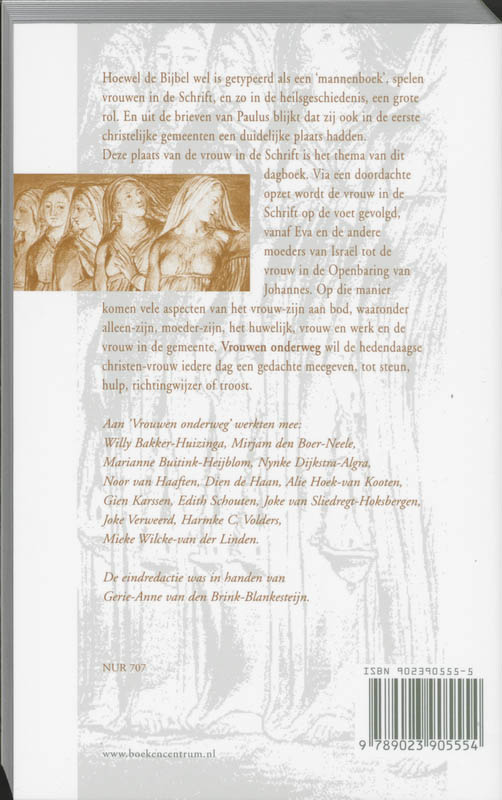 Hoewel de Bijbel wel is getypeerd als een ‘mannenboek’, spelen
vrouwen in de Schrift, en zo in de heilsgeschiedenis, een grote
rol. En uit de brieven van Paulus blijkt dat zij ook in de eerste
christelijke gemeenten een duidelijke plaats hadden.
Deze plaats van de vrouw in de Schrift is het thema van dit
dagboek. Via een doordachte
opzet wordt de vrouw in de
Schrift op de voet gevolgd,
vanaf Eva en de andere
moeders van Israël tot de
vrouw in de Openbaring van
Johannes. Op die manier
komen vele aspecten van het vrouw-zijn aan bod, waaronder
alleen-zijn, moeder-zijn, het huwelijk, vrouw en werk en de
vrouw in de gemeente. Vrouwen onderweg wil de hedendaagse
christen-vrouw iedere dag een gedachte meegeven, tot steun,
hulp, richtingwijzer of troost.
Aan ‘Vrouwen onderweg’ werkten mee:
Willy Bakker-Huizinga, Mirjam den Boer-Neele,
Marianne Buitink-Heijblom, Nynke Dijkstra-Algra,
Noor van Haaften, Dien de Haan, Alie Hoek-van Kooten,
Gien Karssen, Edith Schouten, Joke van Sliedregt-Hoksbergen,
Joke Verweerd, Harmke C. Volders,
Mieke Wilcke-van der Linden.
De eindredactie was in handen van
Gerie-Anne van den Brink-Blankesteijn.
NUR 707
ISBN 902390555-5
9 789023 905554
www.boekencentrum.nl